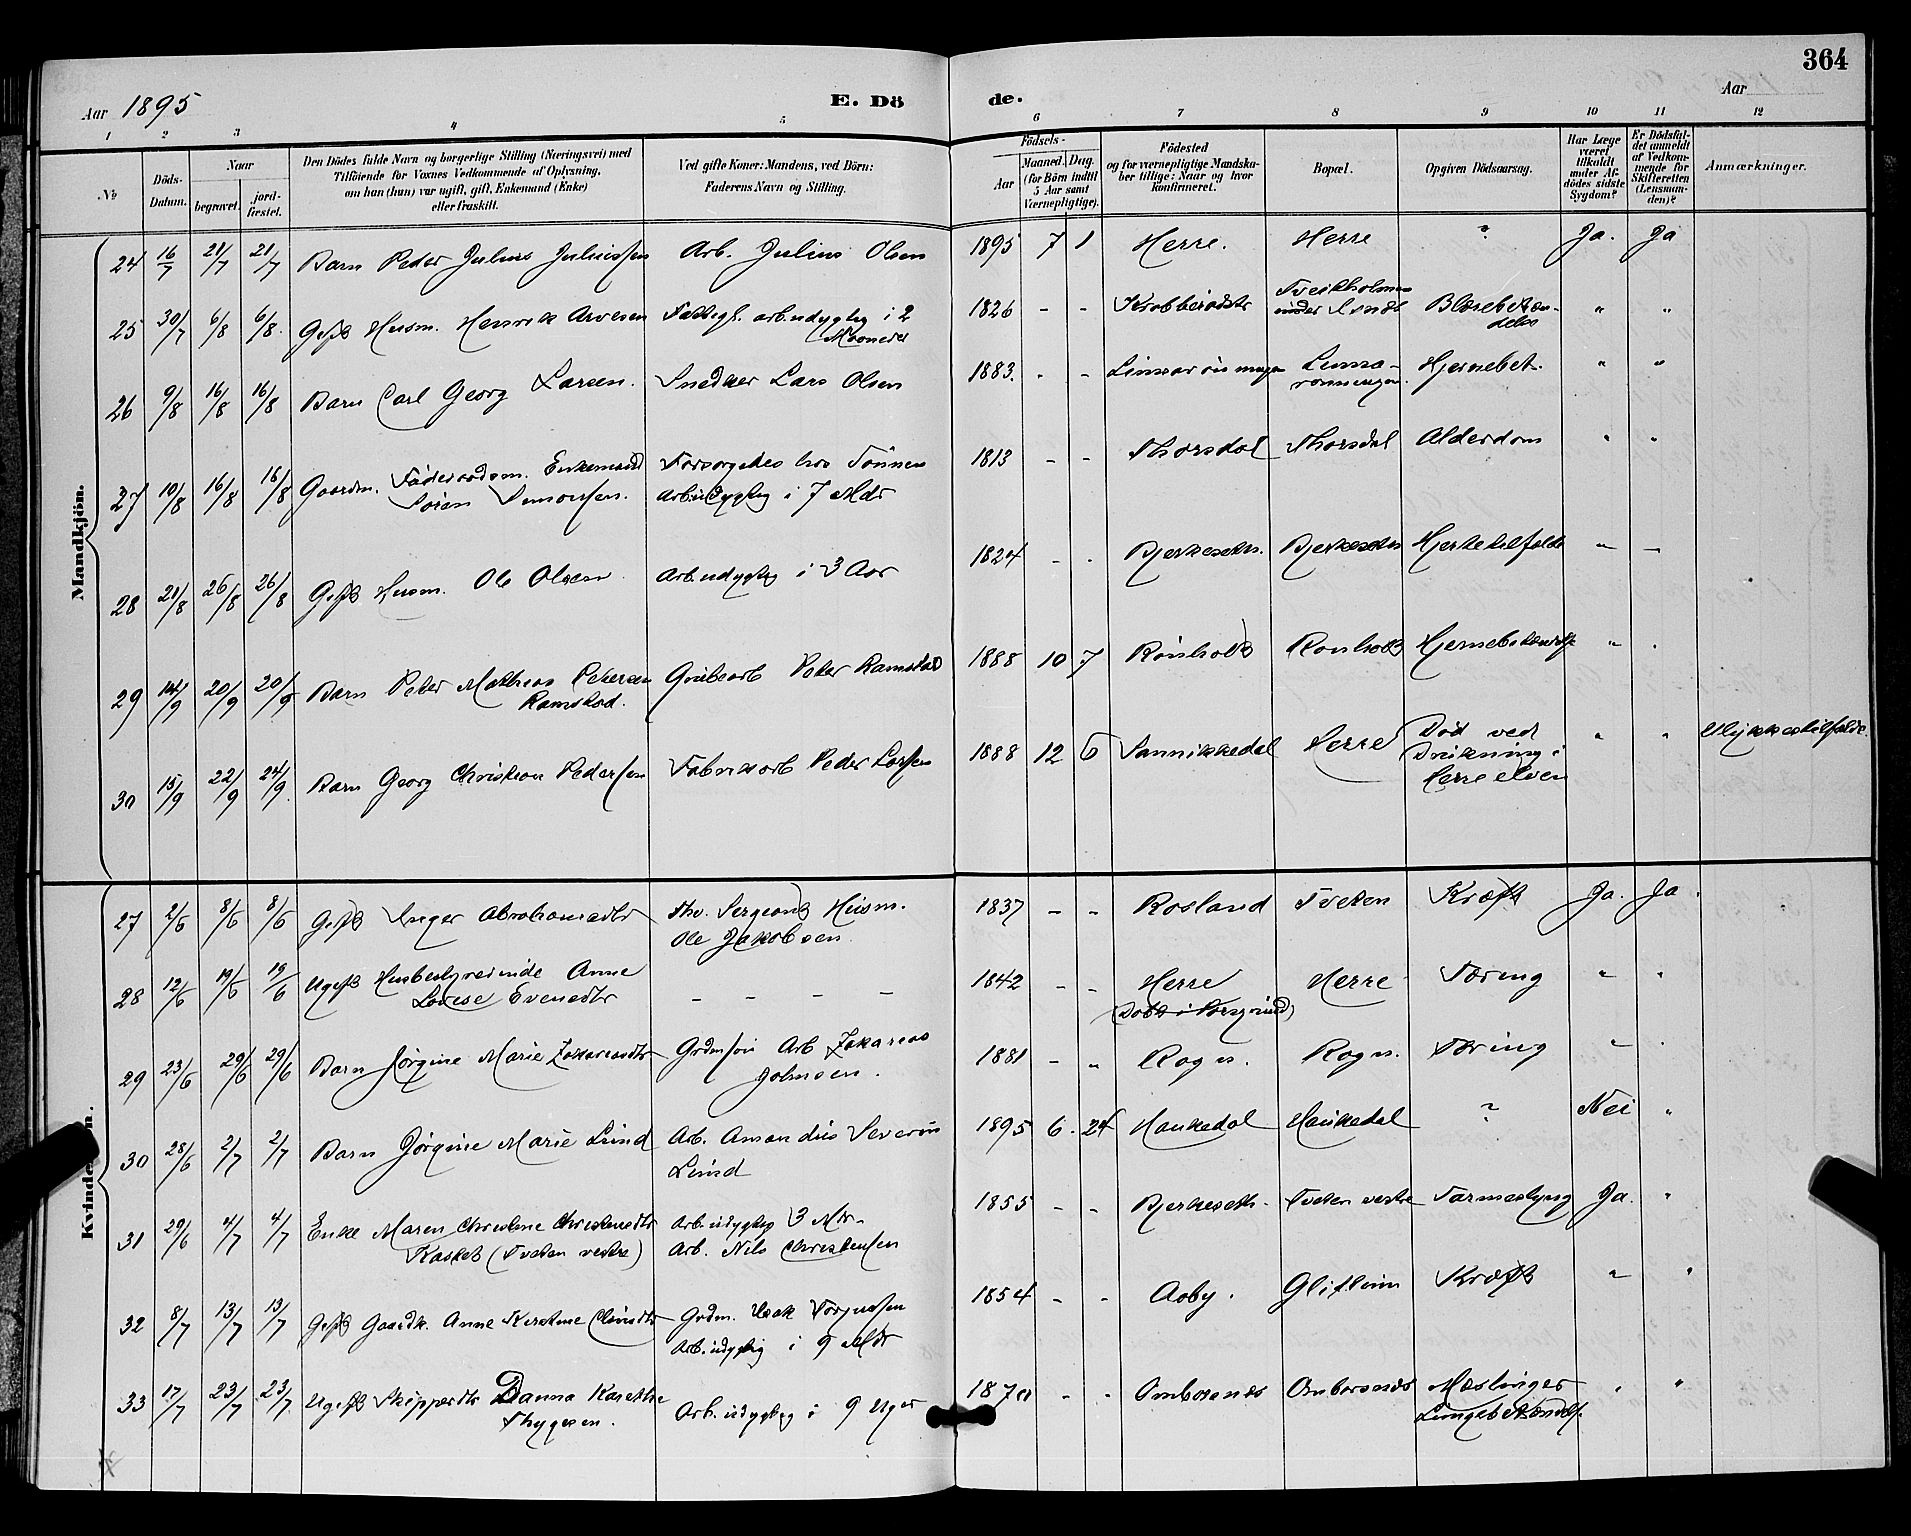 364
Aar 1895
E. Dö
de.
Aar
1 2 3 4 5 6 7 8 9 10 11 12
No
Döds-
Datum.
Naar
begravet.
jord-
fæstet.
Den Dödes fulde Navn og borgerlige Stilling (Næringsvei) med
Tilföiende for Voxnes Vedkommende af Oplysning,
om han (hun) var ugift, gift, Enkemand (Enke)
eller fraskilt.
Ved gifte Koner: Mandens, ved Börn:
Faderens Navn og Stilling.
Födsels-
Aar
Maaned.
Dag.
(for Börn indtil
5 Aar samt
Værnepligtige).
Födested
og for værnepligtige Mandska-
ber tillige: Naar og hvor
konfirmeret.
Bopæl.
Opgiven Dödsaarsag.
Har Læge
været
tilkaldt
under Af-
dödes sidste
Sygdom?
Er Dödsfal-
det anmeldt
af Vedkom-
mende for
Skifteretten
(Lensman-
den)?
Anmærkninger.
Mandkjön.
24 16/7 21/7 21/7 Barn Peder Julius Juliussen Arb. Julius Olsen 1895 7 1 Herre. Herre ? Ja. Ja
25 30/7 6/8 6/8. Gift Husm. Henrik Arvesen Fattigl. arb.udygtig i 2
Maaneder
1826 - -
under
Blærebetæn-
delse " "
26 9/8 16/8 16/8 Barn Carl Georg Larsen. Snedker Lars Olsen 1883. - - Hjernebet. " "
27 10/8 16/8 16/8 Gaardm. Föderaadsm. Enkemand
Sören Simonsen.
Forsørgedes hos Sönnen
Arb.udygtig i 7 Mdr
1813 - - Thorsdal Thorsdal Alderdom " "
28 21/8 26/8 26/8 Gift Husm. Ole Olsen Arb.udygtig i 3 Aar 1824 - - Bjerkeseten. Bjerkeseten Hjertetilfælde " -
29 14/9 20/9 20/9 Barn Peter Mathias Petersen
Ramstad.
Grubearb Peter Ramstad 1888 10 7 Rönholt Rönholt Hjernebetændelse " "
30 15/9 22/9 24/9 Barn Georg Christian Pedersen Fabrikarb Peder Larsen 1888 12 6 Sannikkedal Herre Död ved
Drukning i
Herre elven
" " Ulykkestilfælde.
Kvindekjön.
27 2/6 8/6 8/6 Gift Inger Abrahamsdtr fhv. Sergeant Husm.
Ole Jakobsen.
1837 - - Rosland Tveten Kræft Ja. Ja.
28 12/6 19/6 19/6 Ugift Husbestyrerinde Anne
Lovise Evensdtr
- - - - 1842 - - Herre
(Döbt i Porsgrund)
Herre Tæring " "
29 23/6 29/6 29/6 Barn Jörgine Marie Zakariasdtr Grdmsön Arb Zakarias
Johnsen.
1881 - " Rogn. Rogn. Tæring " "
30 28/6 2/7 2/7 Barn Jörgine Marie Lund Arb. Amandus Severin
Lund
1895 6. 24 Haukedal Haukedal ? Nei "
31 29/6 4/7 4/7 Enke Maren Christine Christensdtr
Kasket (Tveten vestre)
Arb.udygtig 3 Mdr.
Arb. Nils Christensen
1855 - - Bjerkeseth. Tveten vestre Tarmeslyng Ja. "
32 8/7 13/7 13/7 Gift Gaardk. Anne Kirstine Grdm. Isak
Arb.udygtig i 9 Mdr
1854 - - Aaby. Kræft " "
33 17/7 23/7 23/7. Ugift Skipperdtr Danna Karethe
Thygesen.
Arb.udygtig i 9 Uger - - Omborsnæs Omborsnæs Mæslinger
Lungebetændelse. " "